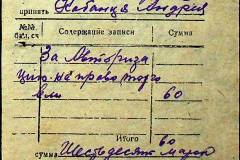 принять Кабанца Андрея
№№ бал. сч. Содержание записи Сумма
За Авториза
цию на право торго
вли 60
Итого 60
сумма Шестьдесят марок